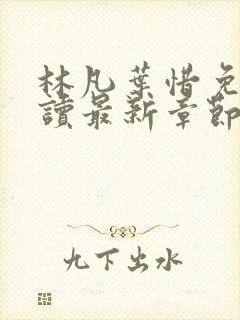 林凡葉惜免
讀最新章節
九下出水